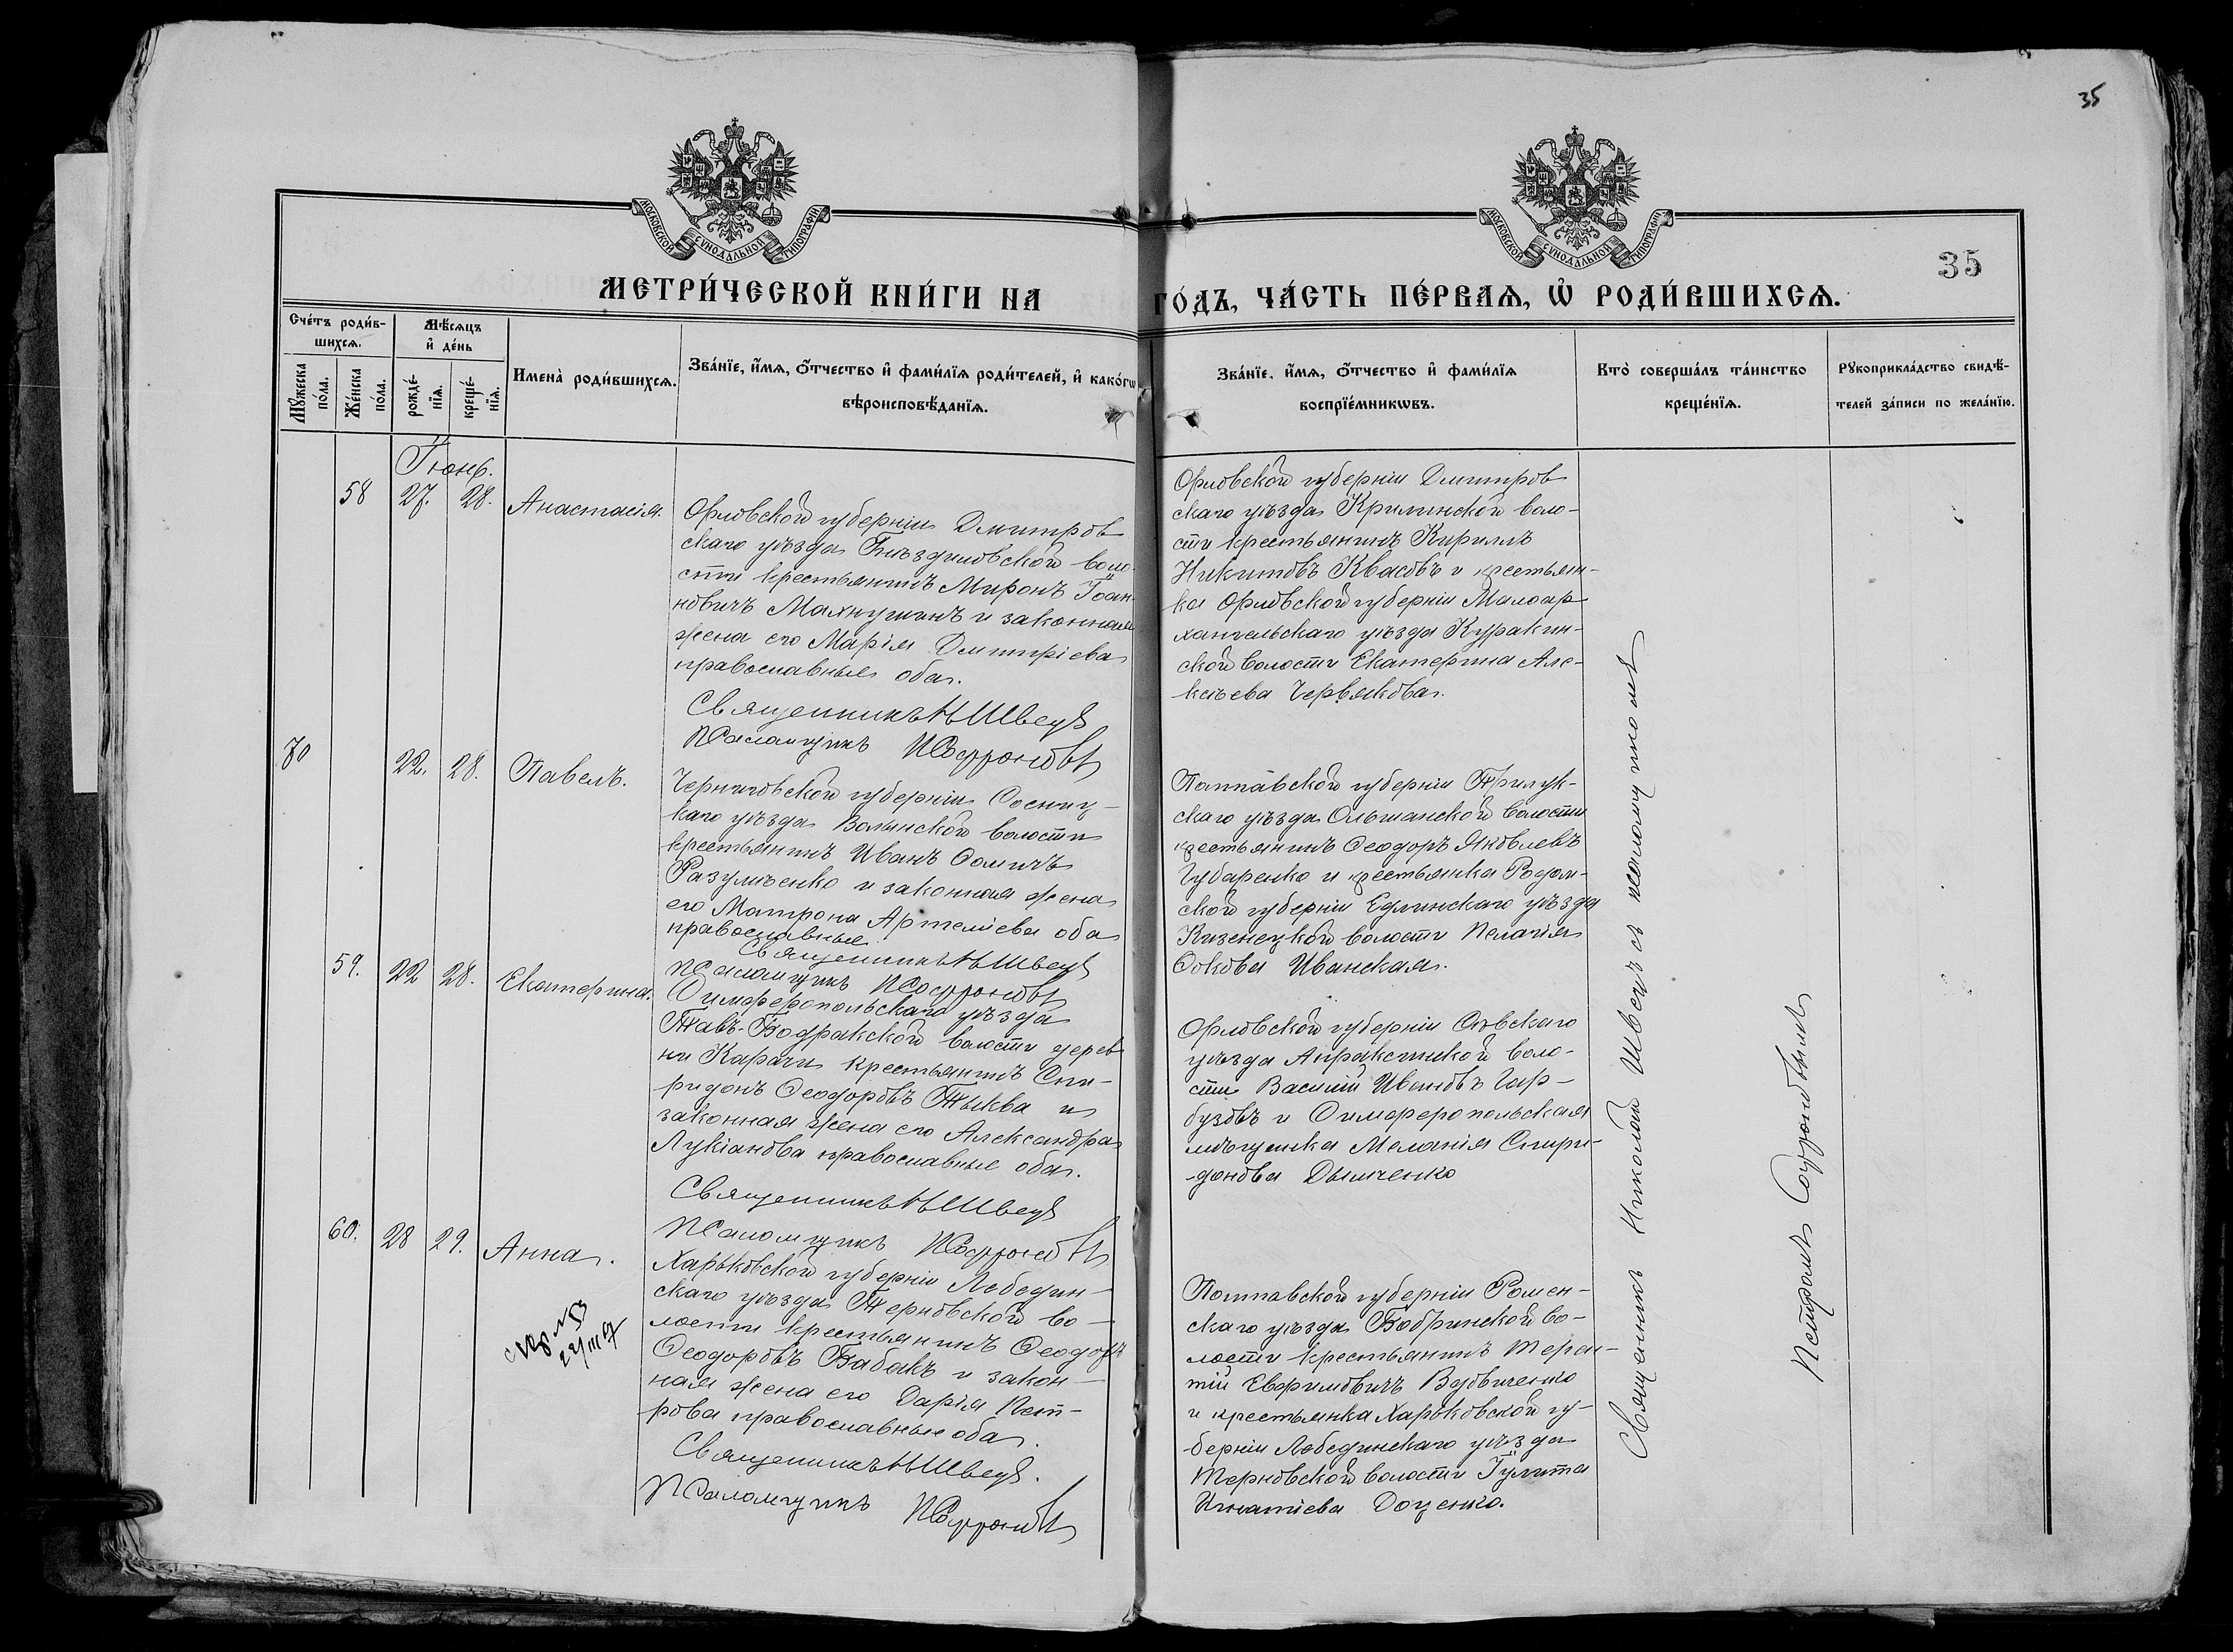 35
МОСКОВСКОЙ СѴНОДАЛЬНОЙ ТИПОГРАФІИ
МОСКОВСКОЙ СѴНОДАЛЬНОЙ ТИПОГРАФІИ
35
МЕТРИ́ЧЕСКОЙ КНИ́ГИ НА ГО́ДЪ, ЧА́СТЬ ПЕ́РВАѦ, Ѡ҆ РОДИ́ВШИХСѦ.
Счéтъ роди́в-
шихсѧ.
Мꙋ́жеска
по́ла.
Же́нска
по́ла.
Мѣ́сѧцъ
и҆ де́нь
рожде́-
нїѧ.
креще́-
нїѧ.
Имена̀ роди́вшихсѧ.
Зва́нїе, и҆́мѧ, ѻ҆́тчество и҆ фами́лїѧ роди́телей, и҆ како́гѡ
вѣроисповѣ́данїѧ.
Зва́нїе, и҆́мѧ, ѻ҆́тчество и҆ фами́лїѧ
воспрїе́мникѡвъ.
Кто̀ соверша́лъ та́инство
креще́нїѧ.
Рꙋкоприкла́дство свидѣ́-
телей за́писи по жела́нїю.
Іюнь.
58 27. 28. Анастасія.
Орловской губерніи Дмитров
скаго уѣзда Гнѣздиловской воло-
сти крестьянинъ Миронъ Іоан
новичъ Махнушинъ и законная
жена его Марія Дмитріева
православные оба.
Священникъ Н Швецъ
Псаломщикъ П Софроновъ
Орловской губерніи Дмитров
скаго уѣзда Круп­инской воло-
сти крестьянинъ Кириллъ
Никитовъ Квасовъ и крестьян-
ка Орловской губерніи Малоар
хангельскаго уѣзда Куракин-
ской волости Екатерина Але-
ксѣева Червякова.
70 22. 28. Павелъ.
Черниговской губерніи Сосниц-
каго уѣзда Волынской волости
крестьянинъ Иванъ Ѳомичъ
Разумѣенко и законная жена
его Матрона Артеміева оба
православные
Священникъ Н Швецъ
Псаломщикъ П Софроновъ
Полтавской губерніи Прилук-
скаго уѣзда Ольшанской волости
крестьянинъ Ѳеодоръ Яковлевъ
Губаренко и крестьянка Радом-
ской губерніи уѣзда
волости Пелагія
Иванская.
59. 22 28. Екатерина.
Симферопольскаго уѣзда
Тавъ-Бодракской волости дерев
ни Карачи крестьянинъ Спи-
ридонъ Ѳеодоровъ Тыква и
законная жена его Александра
Лукіанова православные оба.
Священникъ Н Швецъ
Псаломщикъ П Софроновъ
Орловской губерніи Сѣвскаго
уѣзда Апраксинской воло-
сти Василій Ивановъ Гар-
бузовъ и Симферопольская
мѣщанка Меланія Спири-
-донова Дымченко
60. 28 29. Анна.
Харьковской губерніи Лебедин-
скаго уѣзда Терновской во-
лости крестьянинъ Ѳеодоръ
Ѳеодоровъ Бабакъ и закон-
ная жена его Дарія Пет-
рова православные оба.
Священникъ Н Швецъ.
Псаломщикъ П Софроновъ
Полтавской губерніи Ромен-
скаго уѣзда Бобринской во-
лости крестьянинъ Терен-
тій Евфимовичъ Вдовиченко
и крестьянка Харьковской гу-
-берніи Лебединскаго уѣзда
Терновской волости Іулита
Игнатіева Доценко.
Священникъ Николай Швецъ съ псаломщикомъ
Петромъ Софроновымъ